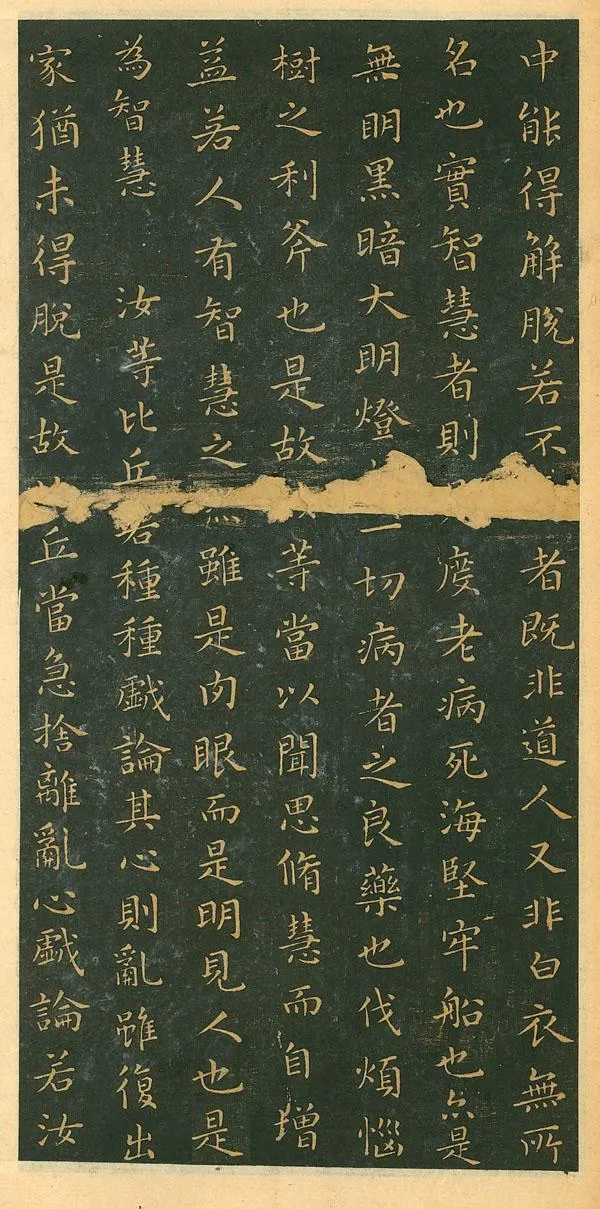 中能得解脫若不者既非道人又非白衣無所
名也實智慧者則度老病死海堅牢船也亦是
無明黑暗大明燈一切病者之良藥也伐煩惱
樹之利斧也是故等當以聞思脩慧而自增
益若人有智慧之雖是肉眼而是明見人也是
為智慧 汝等比丘若種種戱論其心則亂雖復出
家猶未得脫是故丘當急捨離亂心戱論若汝